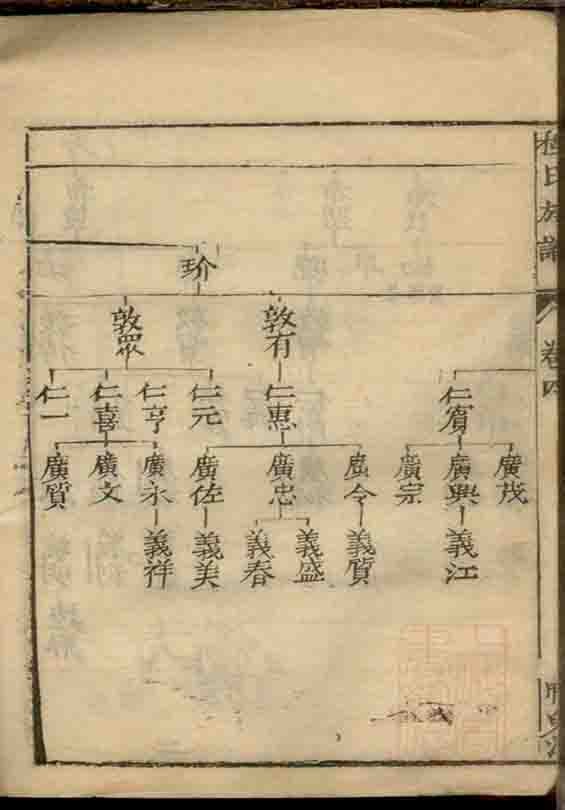 族譜
卷四
玠
敦有
敦眾
仁賓
仁惠
仁元
仁亨
仁喜
仁一
廣茂
廣興
廣宗
廣令
廣忠
廣佐
廣永
廣文
廣質
義江
義質
義盛
義春
義美
義祥